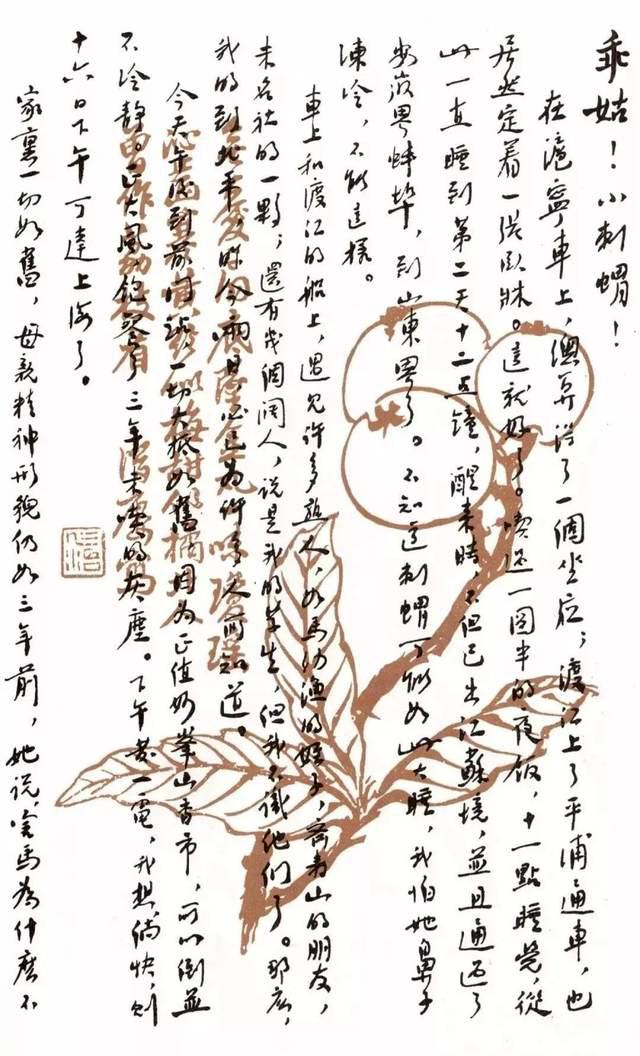 乖姑!小刺蝟!
在滬寧車上,總算得了一個坐位;渡江上了平浦通車,也
居然定着一張臥牀。這就好了。喫過一圓半的夜飯,十一點睡覺,從
此一直睡到第二天十二點鐘,醒來時,不但已出江蘇境,並且通過了
安徽界蚌埠,到山東界了。不知道刺蝟可能如此大睡,我怕她鼻子
凍冷,不能這樣。
車上和渡江的船上,遇見許多熟人,如馬幼漁的姪子,齊壽山的朋友,
未名社的一夥;還有幾個闊人,說是我的學生,但我不識他們了。那麼,
我的到北平,昨今兩日,必已為許多人所知道。
今天午後到前門站,一切大抵如舊,因為正值妙峯山香市,所以倒並
不冷靜。正大風,飽餐了三年未喫的灰塵。下午發一電,我想,倘快,則
十六日下午可達上海了。
家裏一切如舊,母親精神形貌仍如三年前,她說,害馬為什麼不